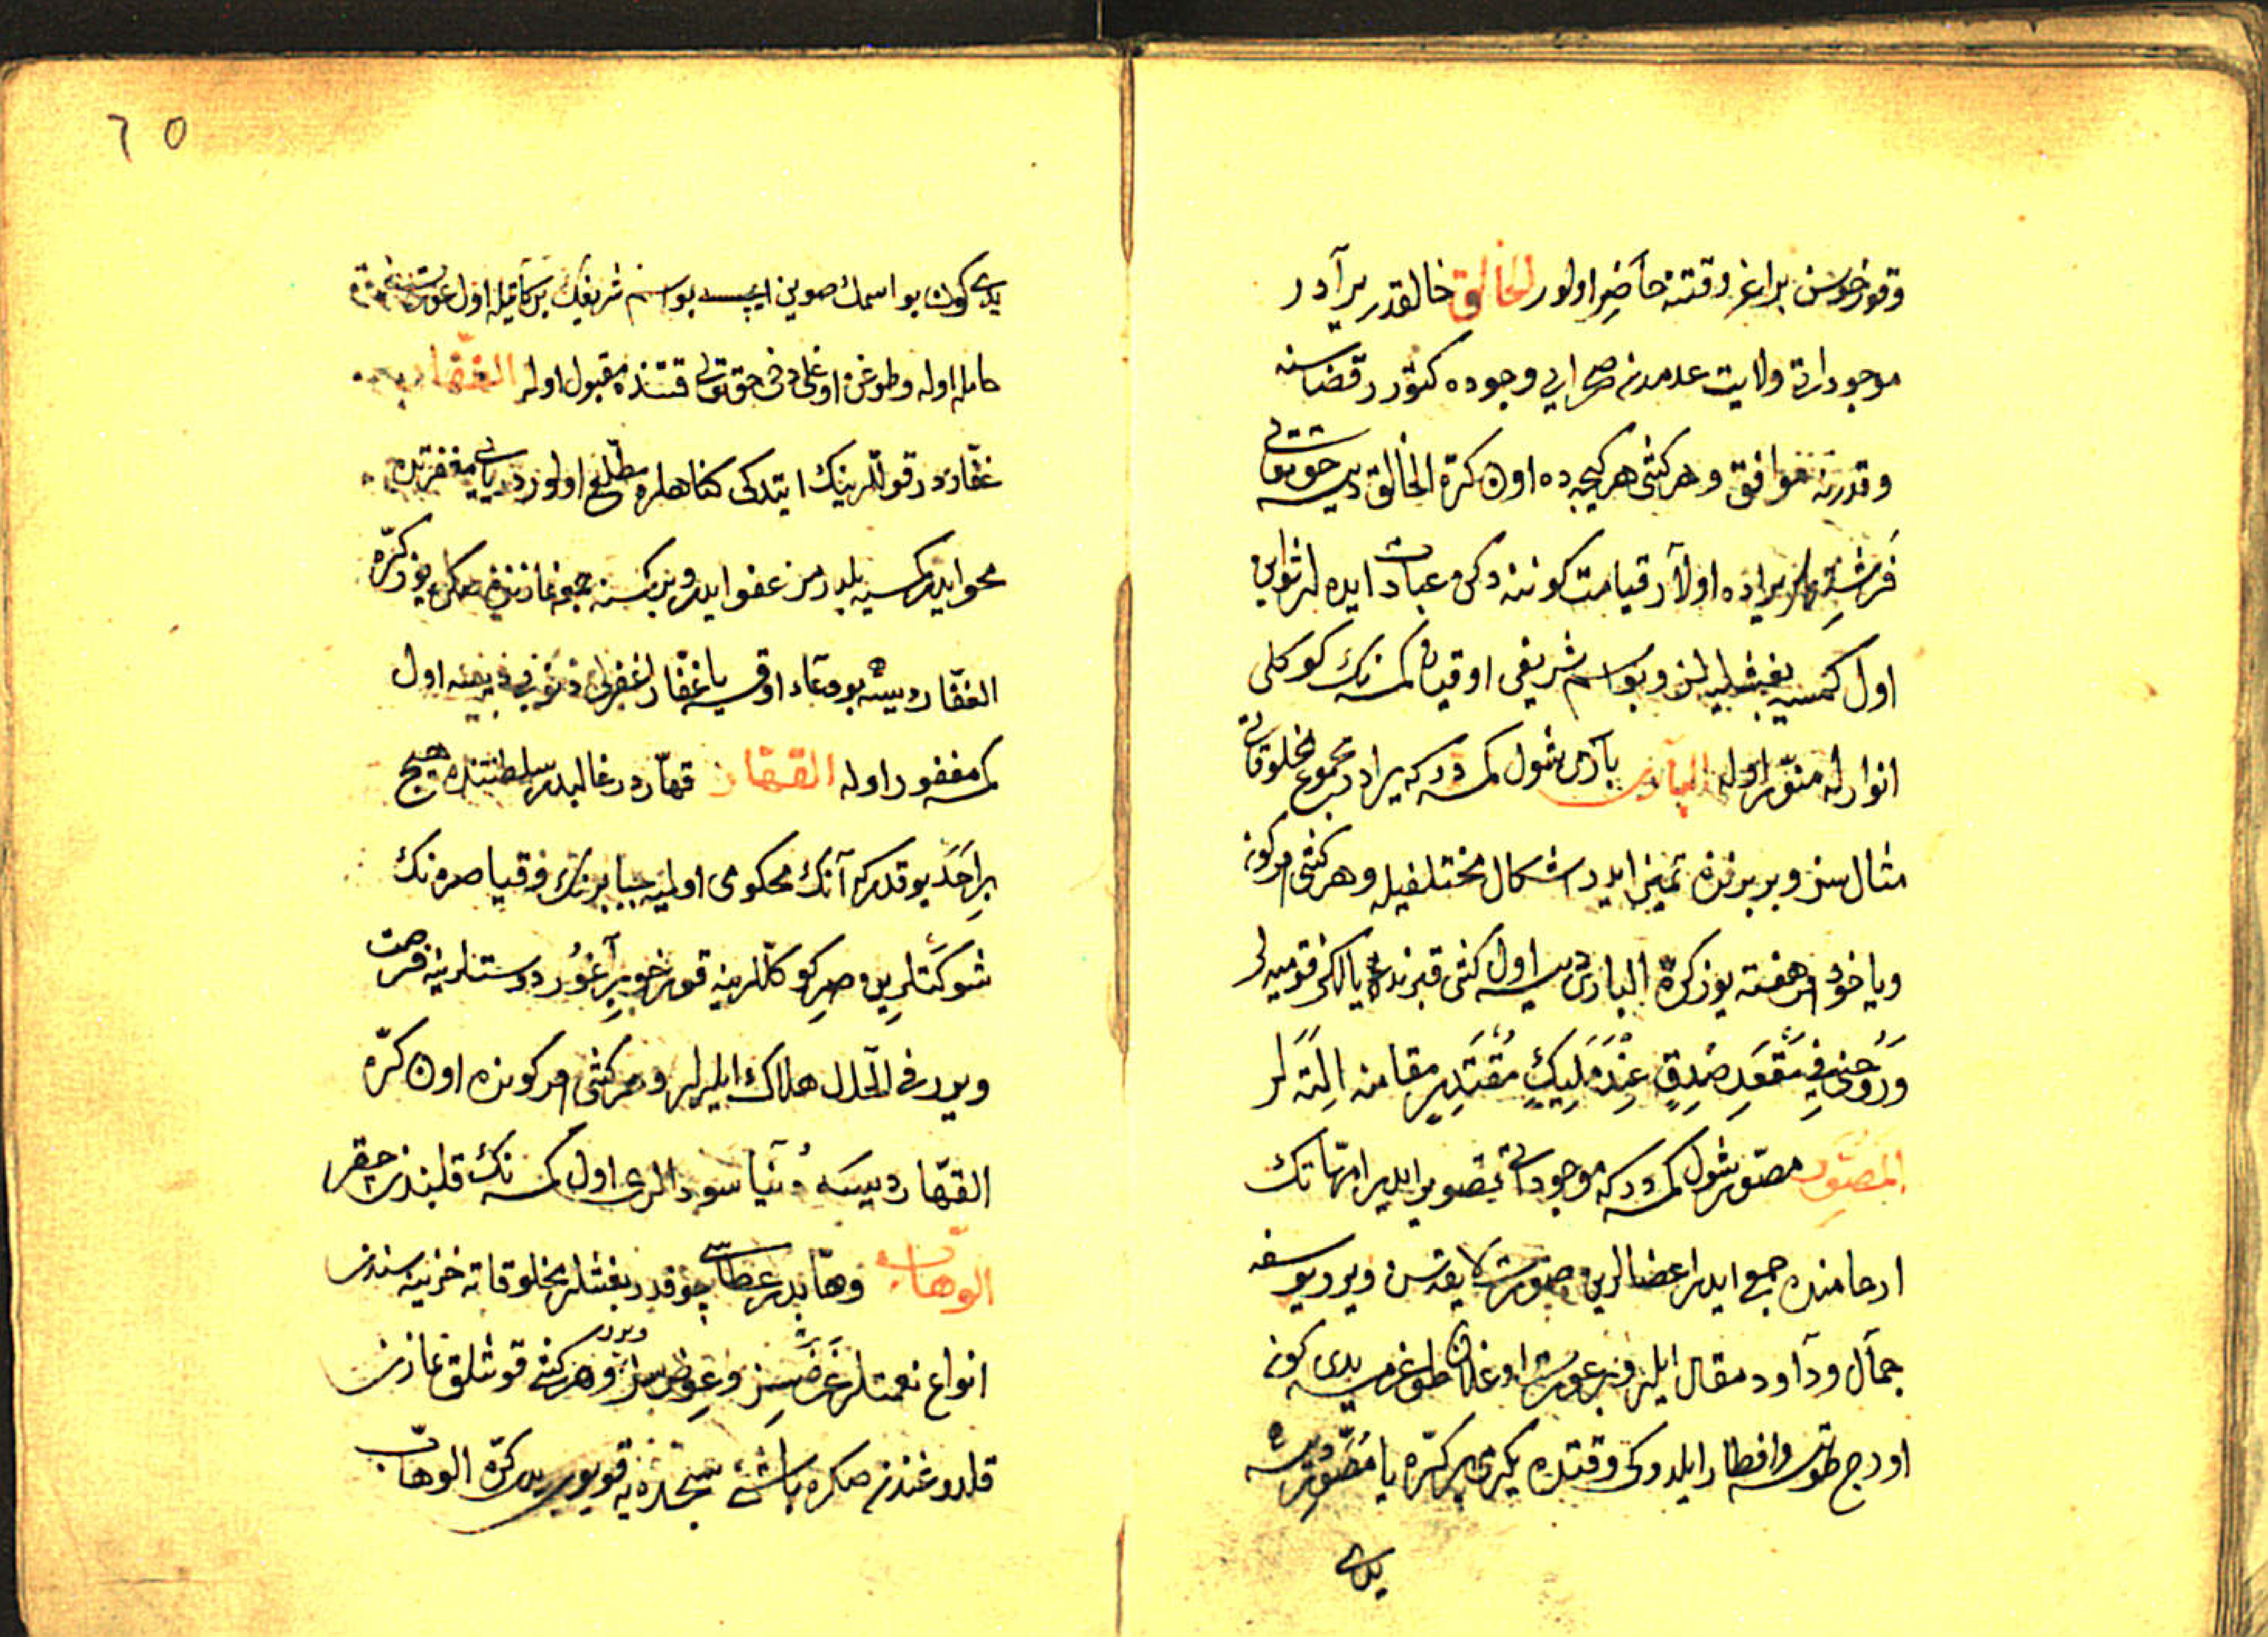 وقورخوسن براغر وقتنه حاضر اولور الخالق خالقدر برآدر
موجوداتی ولایت عدمدن صحرای وجوده کتورر قضاسنه
وقدرنه موافق و هر کشی هر کیجه ده اون کرّه الخالق دیسه حق تعالی
فَرِشتِه لر یراده اولار قیامت کوننه دکن عبادت ایده لر ثوابن
اول کمسیه بغشلیه لر و بو اسم شریفی اوقیان کمسه نك کوکلی
انوارله منوّر اوله الباری باری شول کمسه در که یرادر مجموع مخلوقاتی
مثال سز و بر برندن تمییز ایدر اشکال مختلفیله و هر کشی هر کون
ویا خود هر هفته یوز کرّه الباری دیسه اول کشی قبرنده یالکز قومیه لر
وَرُوحنی فِي مَقْعَدِ صِدْقٍ عِنْدَ مَلِيكٍ مُقْتَدِرٍ مقامنه التَه لر
المصَوّر مصوّر شول کمسه در که موجوداتی تصویر ایدر امّهاتك
ارحامنده جمع ایدر اعضالرین صورت لایقه سن ویرر یوسف
جمآل و دآود مقال ایلر و بر عورت اوغلان طوغرمسه یدی کون
اورج طوتسه و افطار ایلدوکی وقتده یکرمی بر کرّه یا مُصَوِّر دیسه
یدی
یدی کون بو اسمك صوین ایچسه بو اسم شریفك برکاتیله اول عورت
حامله اوله و طوغن اوغلی دخی حق تعالی قتنده مقبول اوله الغفّار
غفّاردر قوللرینك ایتدکی کناهلره مطّلع اولور دریای مغفرتده
محو ایدر کمسیه بلدرمز عفو ایدر و بر کمسنه جمعه نمازندن صکره یوز کرّه
الغفّار دیسه بو دعاء اوقیه یا غفّار اغفرلی ذنوبی اول
کمسه مغفور اوله القهّار قهّاردر غالبدر سلطنتنده هیچ
بر اَحَد یوقدر که آنك محکومی اولمیه جبابرنك و قیاصره نك
شوکتلرین صِر کوکللرینه قورخو بِرآغور دوستلرینه فرصت
ویرر فی الحال هلاك ایلرلر و هر کشی هر کونده اون کرّه
القهّار دیسه دُنیا سودالری اول کمسه نك قلبندن چقر
الوهّاب وهّابدر عطاسی چوقدر بغشلر مخلوقاته خزینه سندن
انواع نعمتلر غَرَضسِز و عِوض سز ویرر و هر کشی قوشلق نمازن
قلدوغندن صکره باشنی سجده یه قویوب یدی کرّه الوهّاب
٦٥